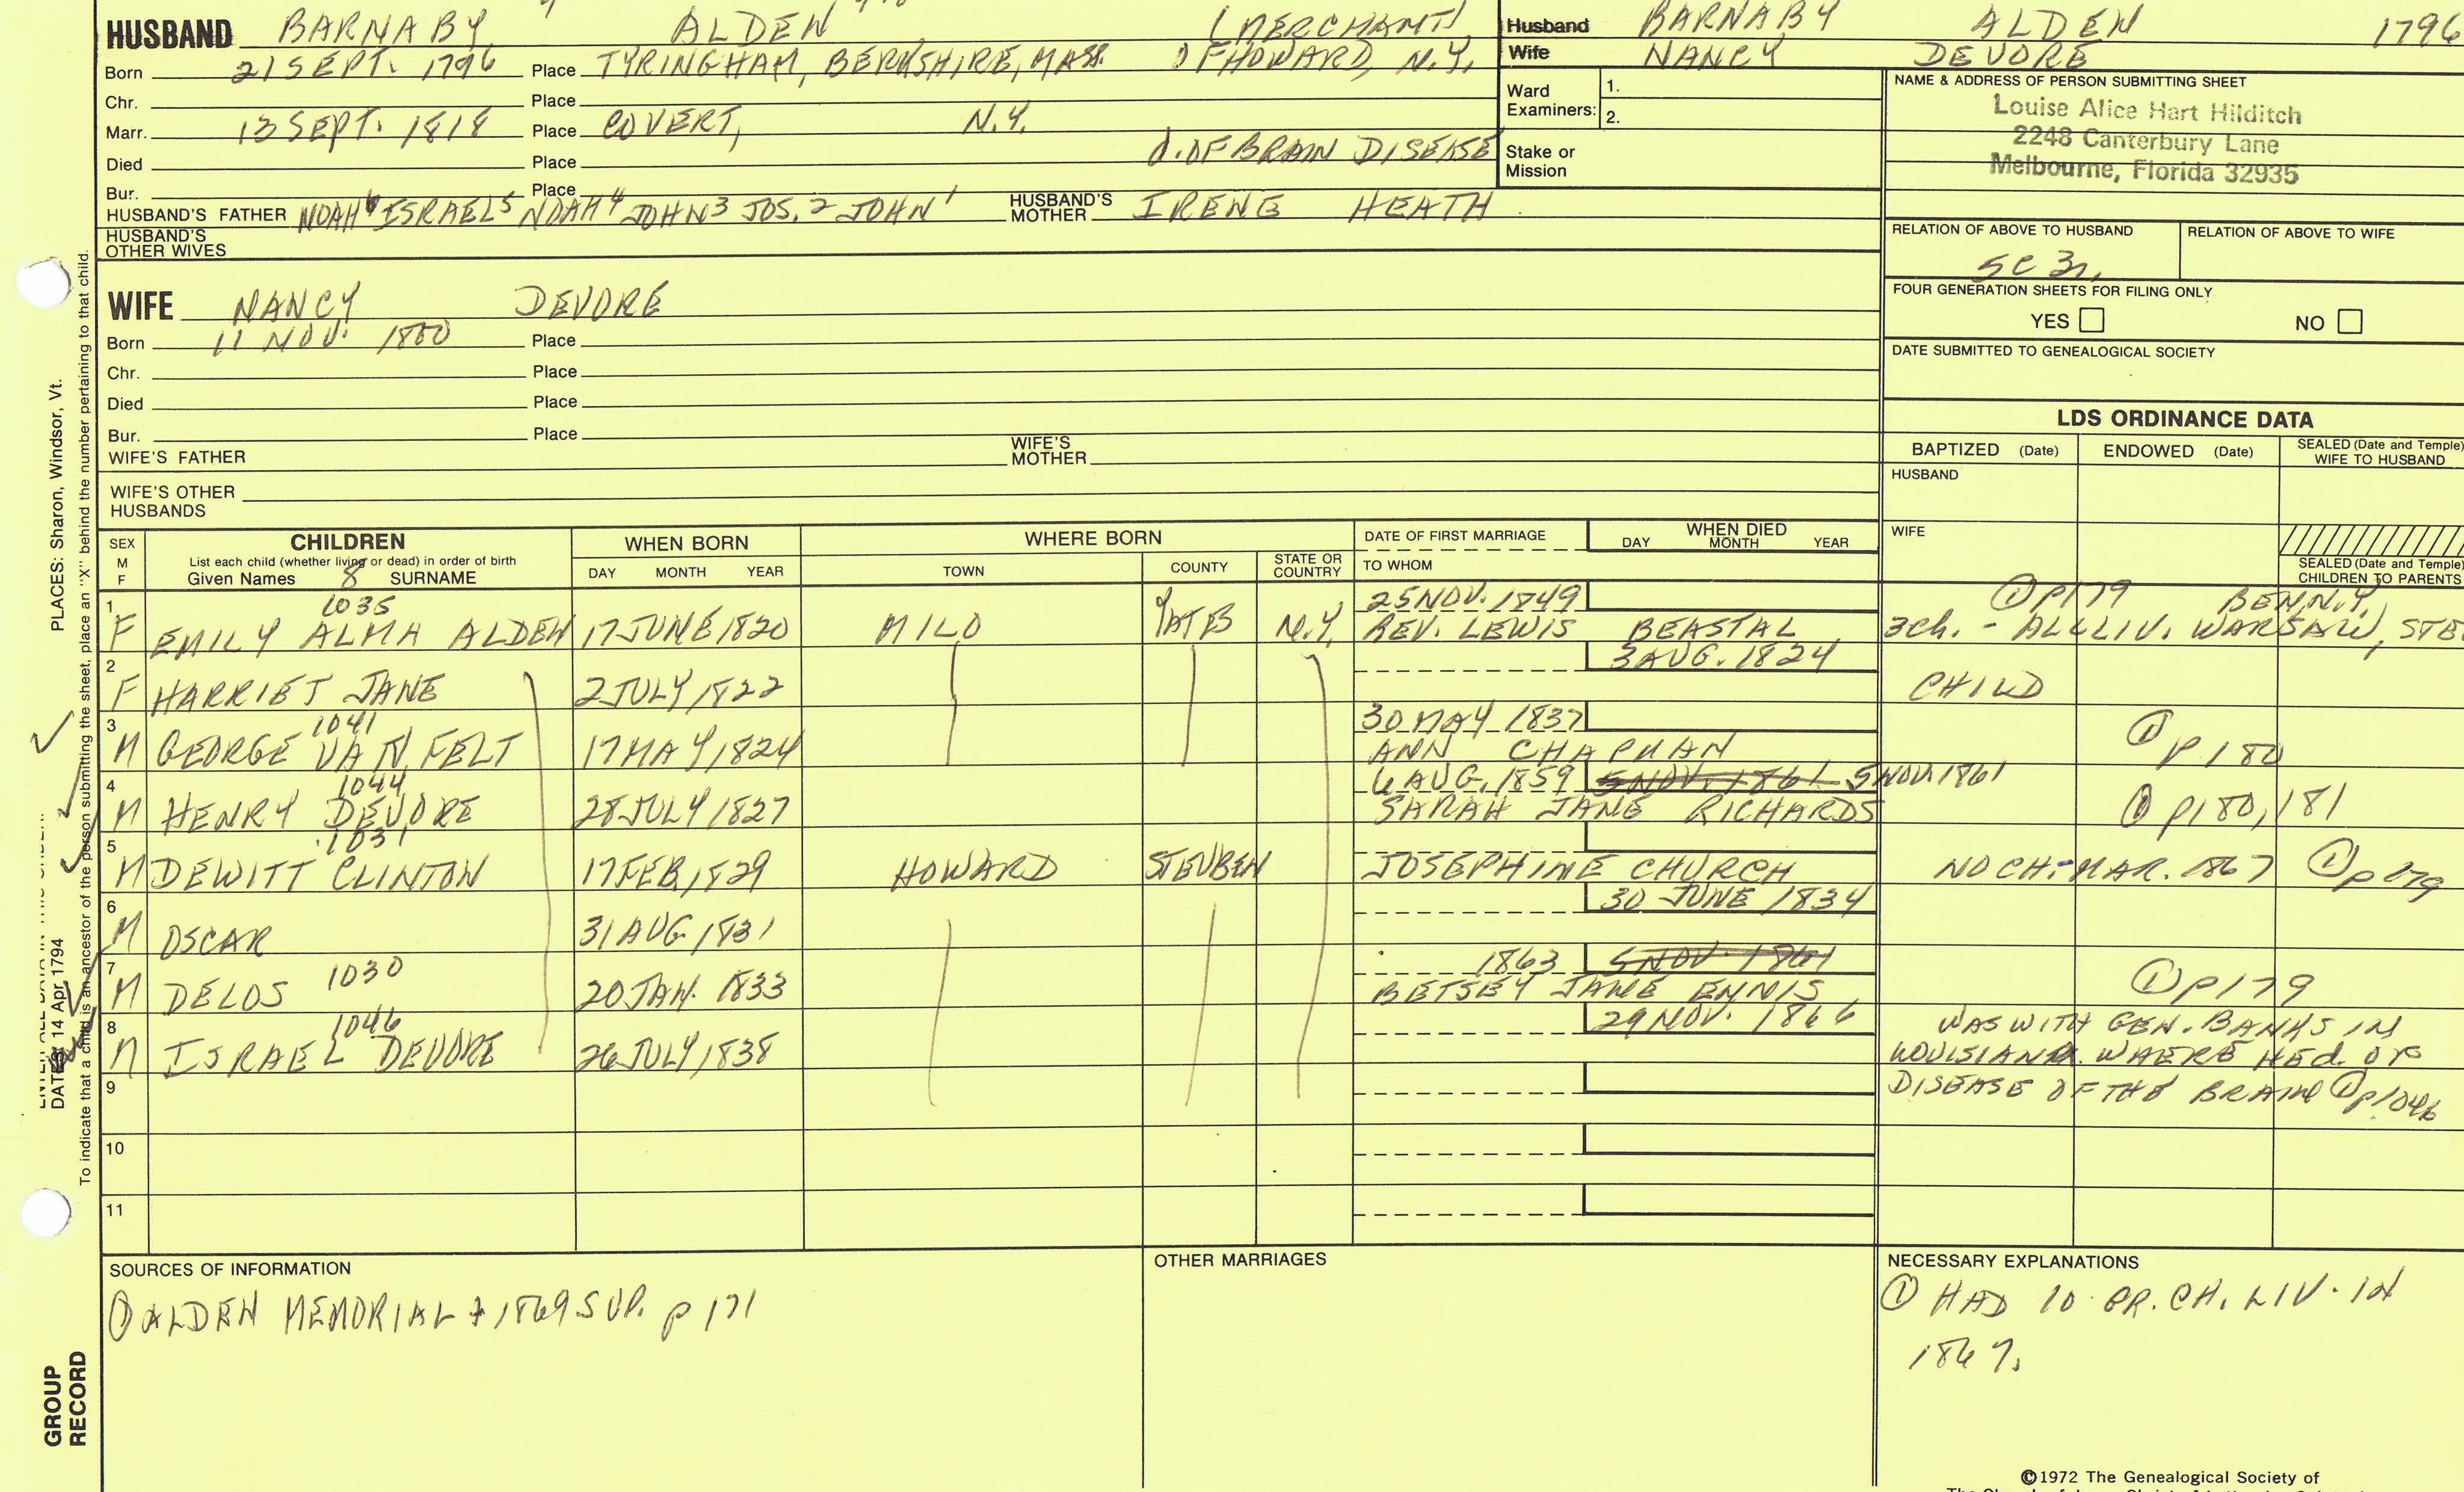 HUSBAND BARNABY ALDEN (MERCHANT)
Born 21 SEPT. 1796 Place TYRINGHAM, BERKSHIRE, MASS. OF HOWARD, N.Y.
Chr. Place
Marr. 13 SEPT. 1818 Place COVERT, N.Y.
Died Place d. OF BRAIN DISEASE
Bur. Place
HUSBAND'S FATHER NOAH6 ISRAEL5 NOAH4 JOHN3 JOS.2 JOHN1 HUSBAND'S MOTHER IRENE HEATH
HUSBAND'S OTHER WIVES
Husband BARNABY ALDEN 1796
Wife NANCY DEVORE
Ward Examiners: 1.
2.
Stake or Mission
NAME & ADDRESS OF PERSON SUBMITTING SHEET
Louise Alice Hart Hilditch
2248 Canterbury Lane
Melbourne, Florida 32935
RELATION OF ABOVE TO HUSBAND RELATION OF ABOVE TO WIFE
5C 3r.
FOUR GENERATION SHEETS FOR FILING ONLY
YES NO
DATE SUBMITTED TO GENEALOGICAL SOCIETY
WIFE NANCY DEVORE
Born 11 NOV. 1800 Place
Chr. Place
Died Place
Bur. Place
WIFE'S FATHER WIFE'S MOTHER
WIFE'S OTHER HUSBANDS
LDS ORDINANCE DATA
BAPTIZED (Date) ENDOWED (Date) SEALED (Date and Temple) WIFE TO HUSBAND
HUSBAND
WIFE
SEALED (Date and Temple) CHILDREN TO PARENTS
SEX M F
CHILDREN
List each child (whether living or dead) in order of birth
Given Names 8 SURNAME
WHEN BORN
DAY MONTH YEAR
WHERE BORN
TOWN COUNTY STATE OR COUNTRY
DATE OF FIRST MARRIAGE
TO WHOM
WHEN DIED
DAY MONTH YEAR
1 1035 25 NOV. 1849 ① p179 BENN.Y.
F EMILY ALMA ALDEN 17 JUNE 1820 MILO YATES N.Y. REV. LEWIS BEASTAL 3 ch. - ALL LIV. WARSAW, STE
2 3 AUG. 1824
F HARRIET JANE 2 JULY 1822 CHILD
3 1041 30 MAY 1837
M GEORGE VAN FELT 17 MAY 1824 ANN CHAPMAN ① p 180
4 1044 6 AUG. 1859 5 NOV. 1861 5 NOV. 1861
M HENRY DEVORE 28 JULY 1827 SARAH JANE RICHARDS ① p180, 181
5 1031
M DEWITT CLINTON 17 FEB. 1829 HOWARD STEUBEN JOSEPHINE CHURCH NO CH. - MAR. 1867 ① p179
6 30 JUNE 1834
M OSCAR 31 AUG 1831
7 1030 1863 5 NOV. 1861
M DELOS 20 JAN. 1833 BETSEY JANE ENNIS ① p179
8 1046 29 NOV. 1866 WAS WITH GEN. BANKS IN
M ISRAEL DEVORE 26 JULY 1838 LOUISIANA WHERE HE d. OF
9 DISEASE OF THE BRAIN ① p1046
10
11
SOURCES OF INFORMATION
① ALDEN MEMORIAL + 1869 SUP. p 171
OTHER MARRIAGES
NECESSARY EXPLANATIONS
① HAD 10 GR. CH. LIV. IN
1867.
©1972 The Genealogical Society of
PLACES: Sharon, Windsor, Vt.
DATES: 14 Apr 1794
To indicate that a child is an ancestor of the person submitting the sheet, place an "X" behind the number pertaining to that child.
GROUP
RECORD